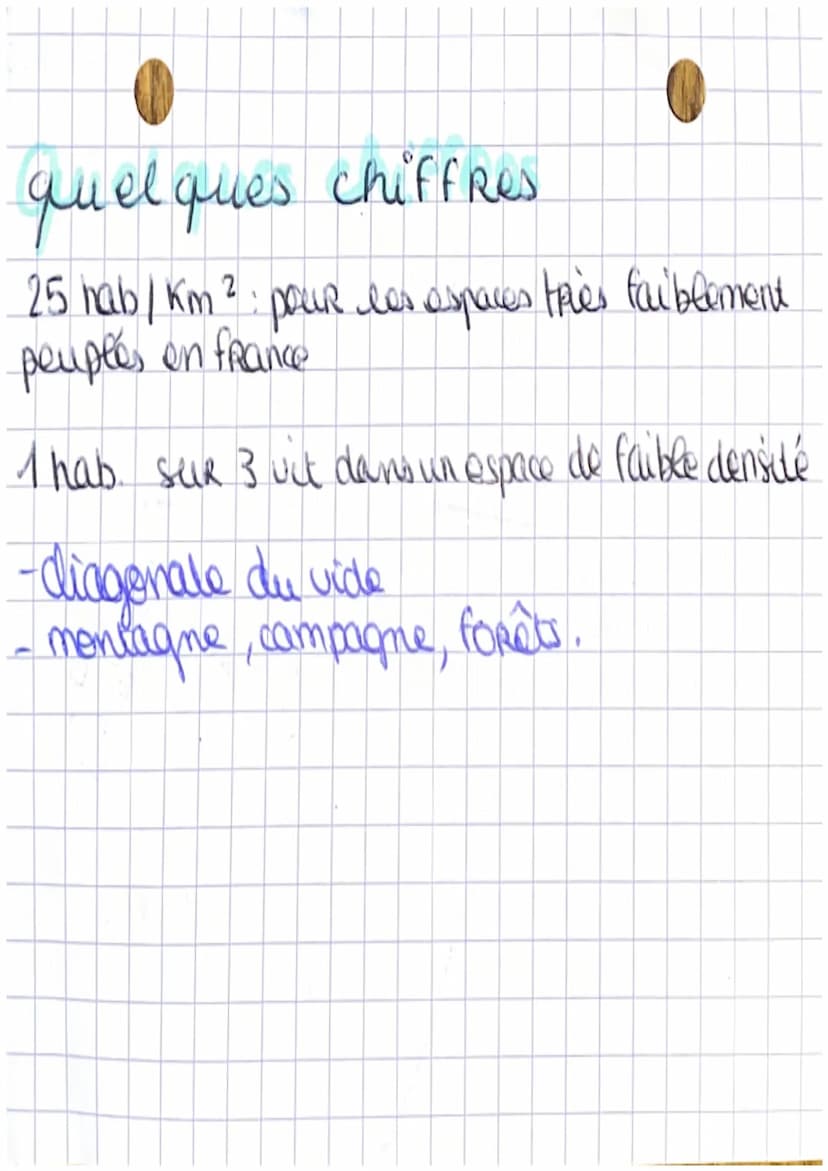 quelques chiffres
25 hab/Km² : pour les espaces très faiblement
peuplés en france
1 hab. sur 3 vit dans un espace de faible densité
- diagonale du vide
- montagne, campagne, forêts.